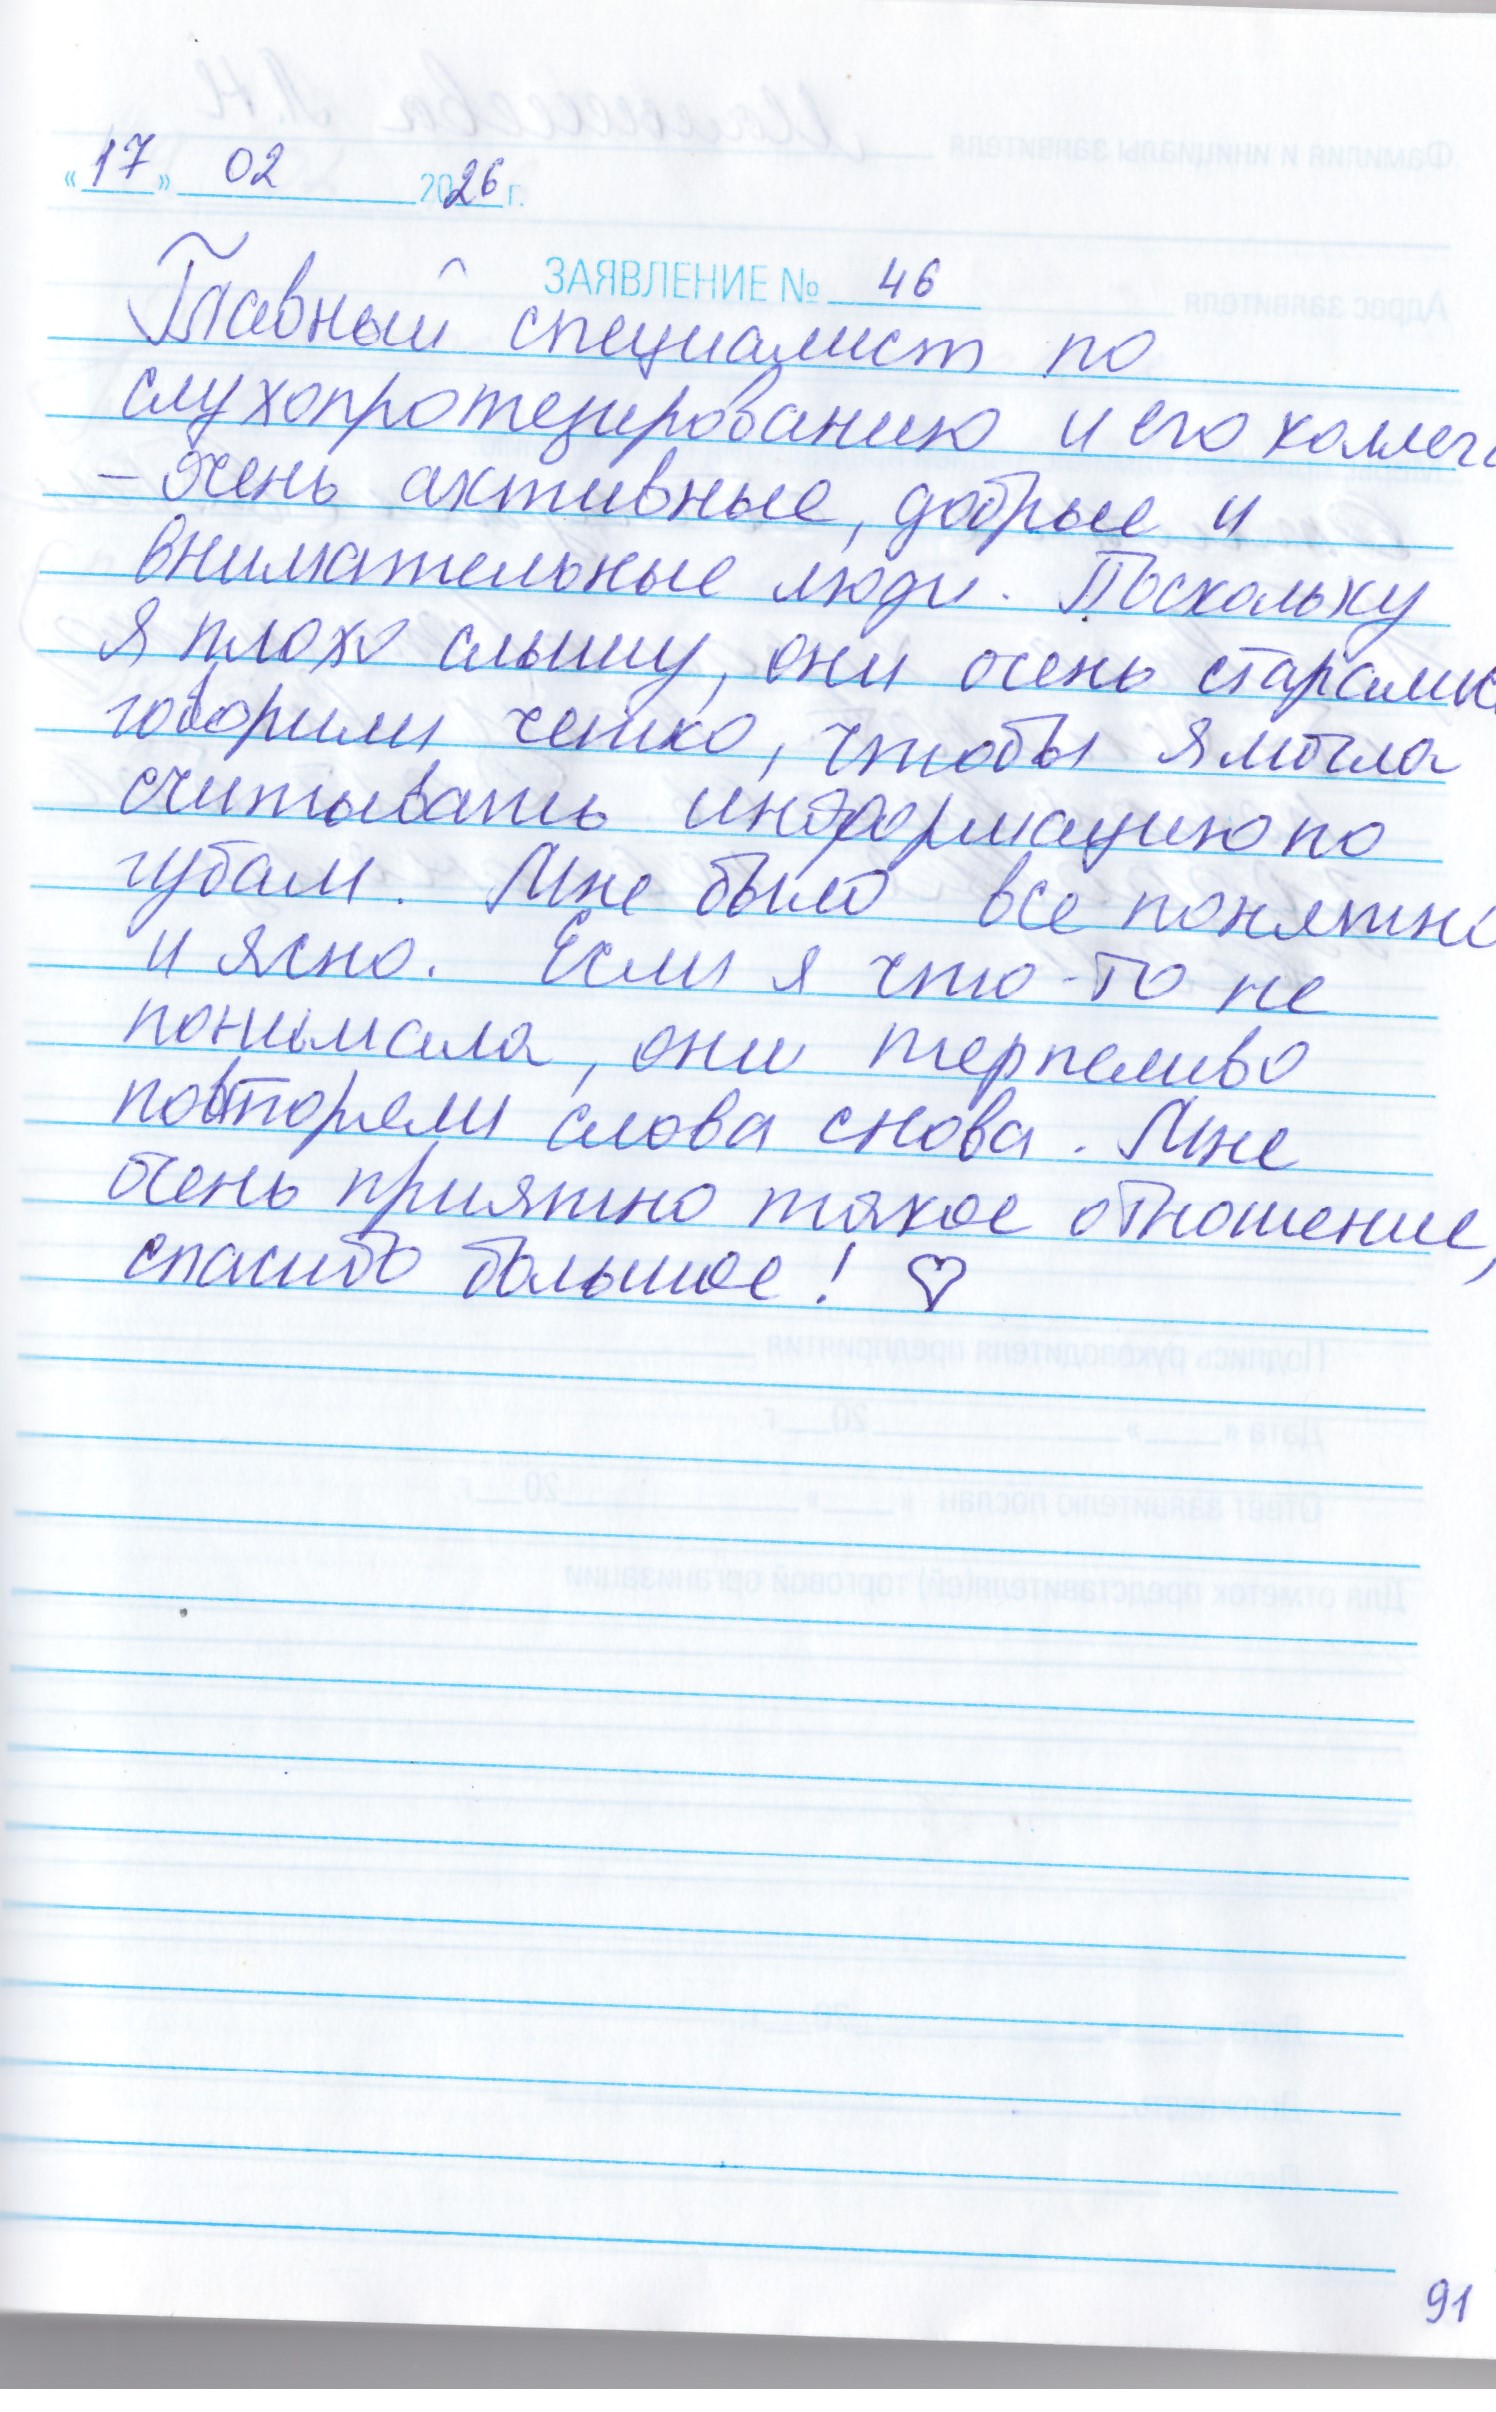 «17» 02 2026 г.
ЗАЯВЛЕНИЕ № 46
Главный специалист по
слухопротезированию и его коллеги
– очень активные, добрые и
внимательные люди. Поскольку
я плохо слышу, они очень старались
говорили четко, чтобы я могла
считывать информацию по
губам. Мне было все понятно
и ясно. Если я что-то не
понимала, они терпеливо
повторяли слова снова. Мне
очень приятно такое отношение,
спасибо большое! ♡
91